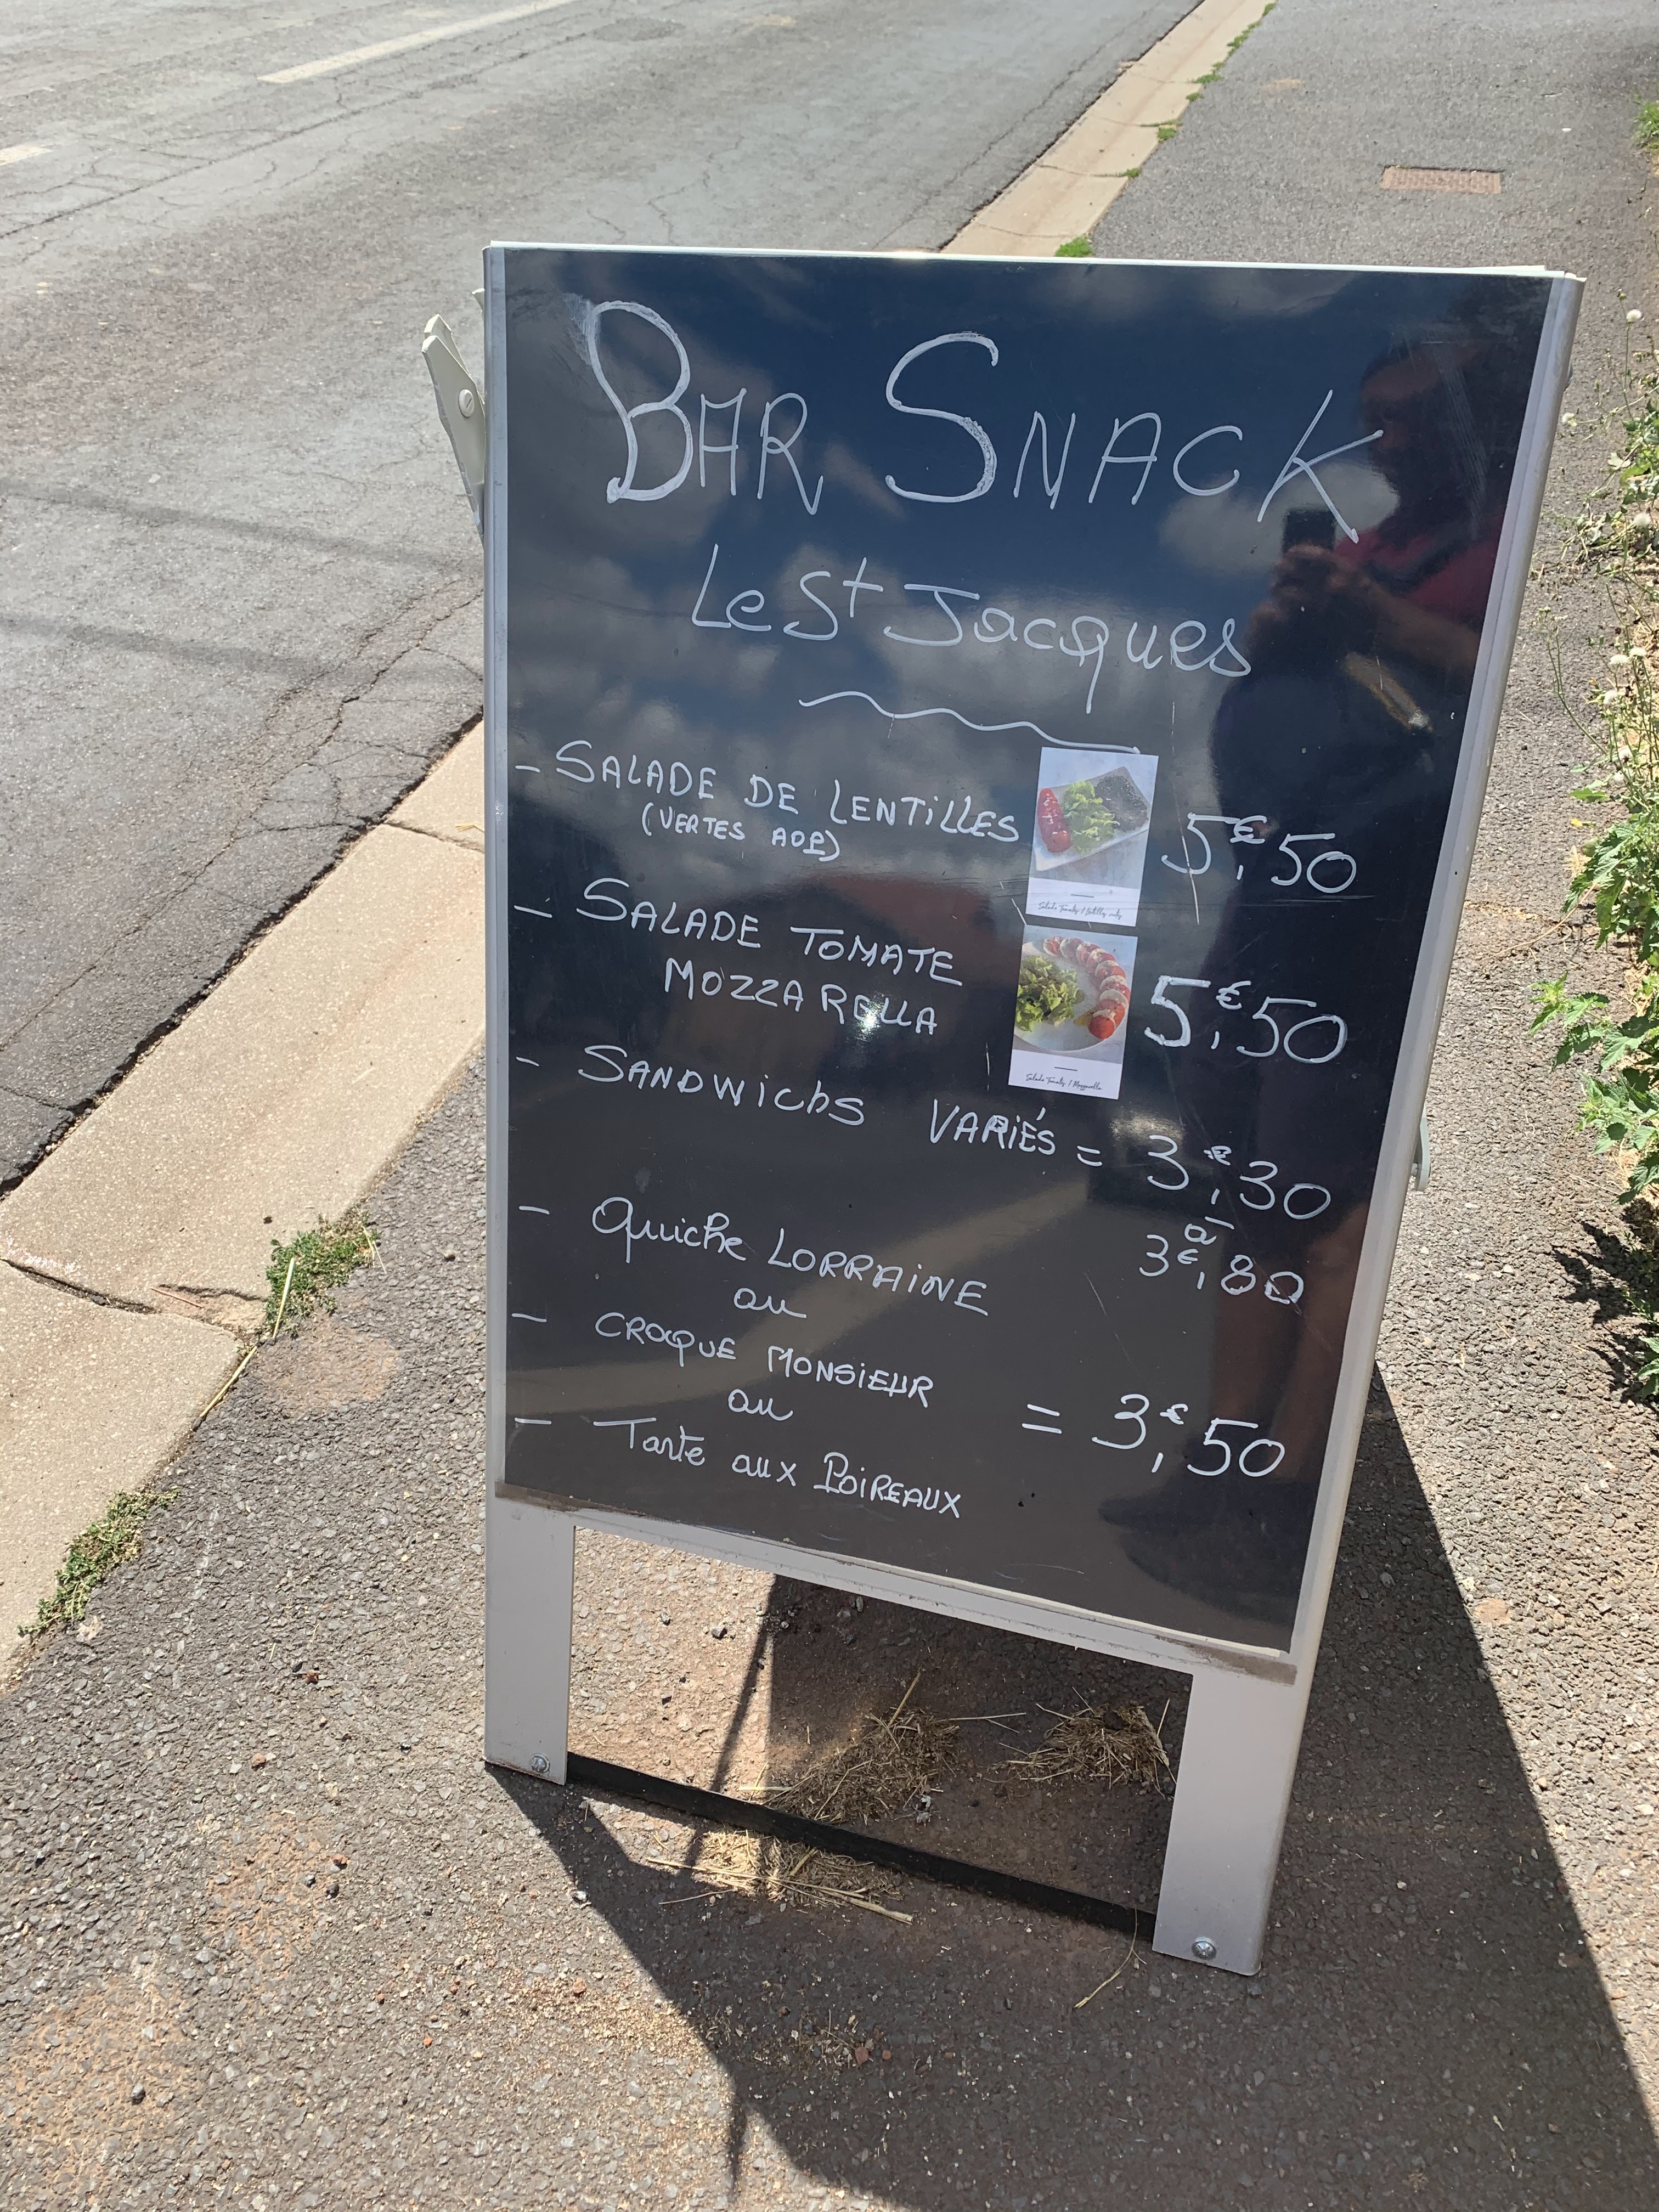 BAR SNACK
Le St Jacques
- SALADE DE LENTILLES 5€,50
(VERTES AOP)
- SALADE TOMATE
MOZZARELLA 5€,50
- SANDWICHS VARIÉS = 3€,30
à
3€,80
- Quiche LORRAINE
ou
- CROQUE MONSIEUR
ou = 3€,50
- Tarte aux POIREAUX
Salade Tomates / Mozzarella